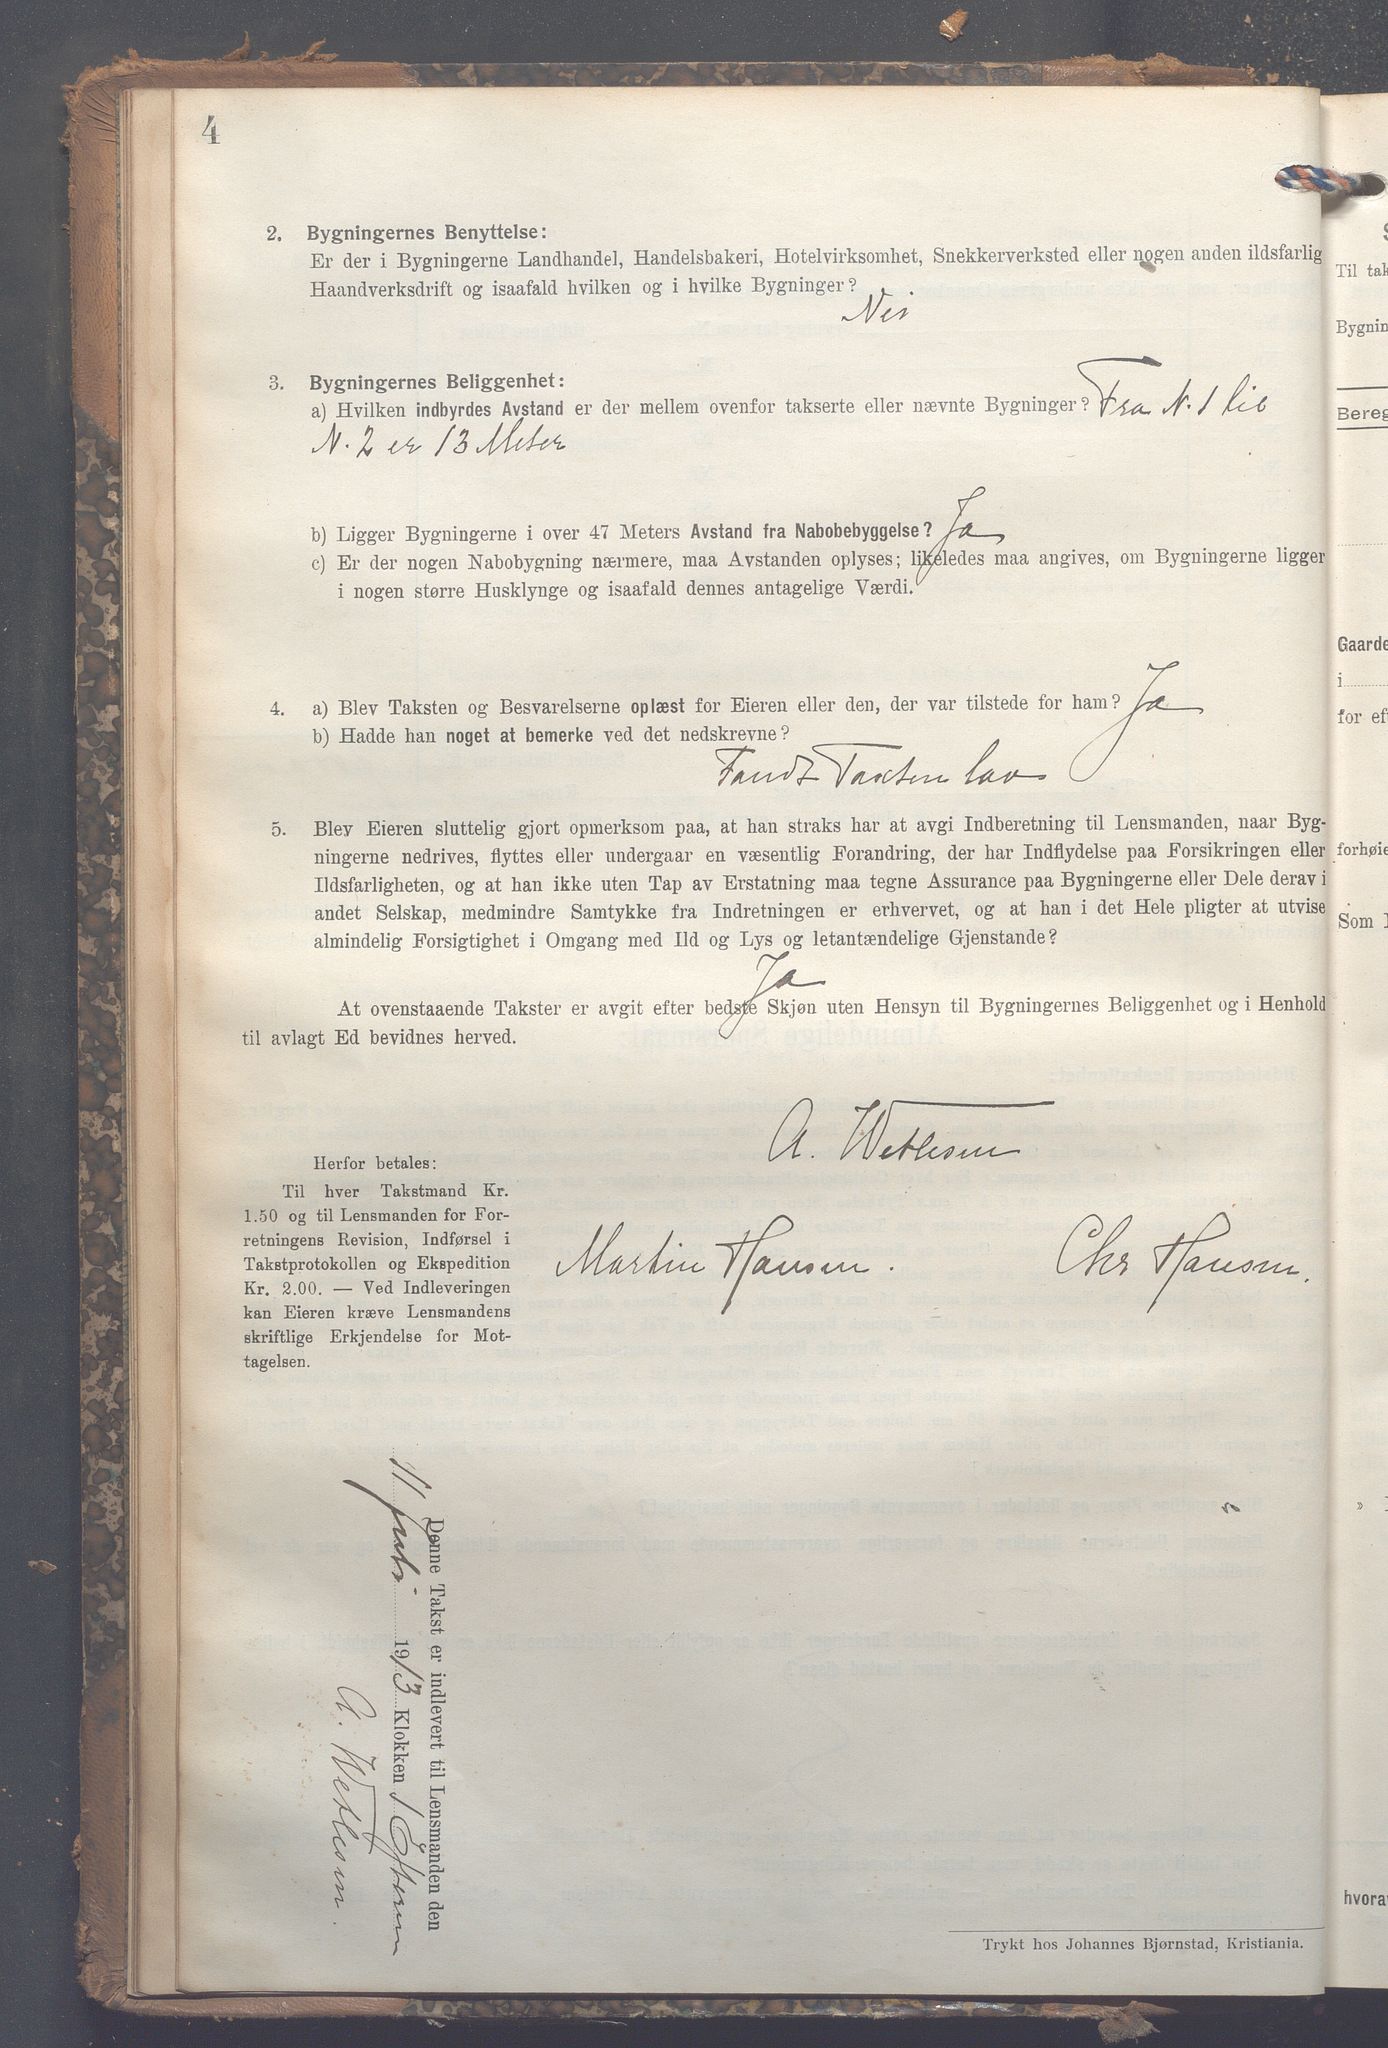 4
2. Bygningernes Benyttelse:
Er der i Bygningerne Landhandel, Handelsbakeri, Hotelvirksomhet, Snekkerverksted eller nogen anden ildsfarlig
Haandverksdrift og isaafald hvilken og i hvilke Bygninger?
Nei
3. Bygningernes Beliggenhet:
a) Hvilken indbyrdes Avstand er der mellem ovenfor takserte eller nævnte Bygninger? Fra N. 1 til
N. 2 er 13 Meter
b) Ligger Bygningerne i over 47 Meters Avstand fra Nabobebyggelse? Ja
c) Er der nogen Nabobygning nærmere, maa Avstanden oplyses; likeledes maa angives, om Bygningerne ligger
i nogen større Husklynge og isaafald dennes antagelige Værdi.
4. a) Blev Taksten og Besvarelserne oplæst for Eieren eller den, der var tilstede for ham? Ja
b) Hadde han noget at bemerke ved det nedskrevne?
Fandt Taxten lav
5. Blev Eieren sluttelig gjort opmerksom paa, at han straks har at avgi Indberetning til Lensmanden, naar Byg-
ningerne nedrives, flyttes eller undergaar en væsentlig Forandring, der har Indflydelse paa Forsikringen eller
Ildsfarligheten, og at han ikke uten Tap av Erstatning maa tegne Assurance paa Bygningerne eller Dele derav i
andet Selskap, medmindre Samtykke fra Indretningen er erhvervet, og at han i det Hele pligter at utvise
almindelig Forsigtighet i Omgang med Ild og Lys og letantændelige Gjenstande?
Ja
At ovenstaaende Takster er avgit efter bedste Skjøn uten Hensyn til Bygningernes Beliggenhet og i Henhold
til avlagt Ed bevidnes herved.
A. Wetlesen
Martin Hansen. Chr Hansen.
Herfor betales:
Til hver Takstmand Kr.
1.50 og til Lensmanden for For-
retningens Revision, Indførsel i
Takstprotokollen og Ekspedition
Kr. 2.00. — Ved Indleveringen
kan Eieren kræve Lensmandens
skriftlige Erkjendelse for Mot-
tagelsen.
Denne Takst er indlevert til Lensmanden den
11 juli 1913 Klokken 1 Efterm
A. Wetlesen.
Trykt hos Johannes Bjørnstad, Kristiania.
Til tak
Bygnin
Bereg
Gaarde
i
for ef
forhøie
Som
hvora